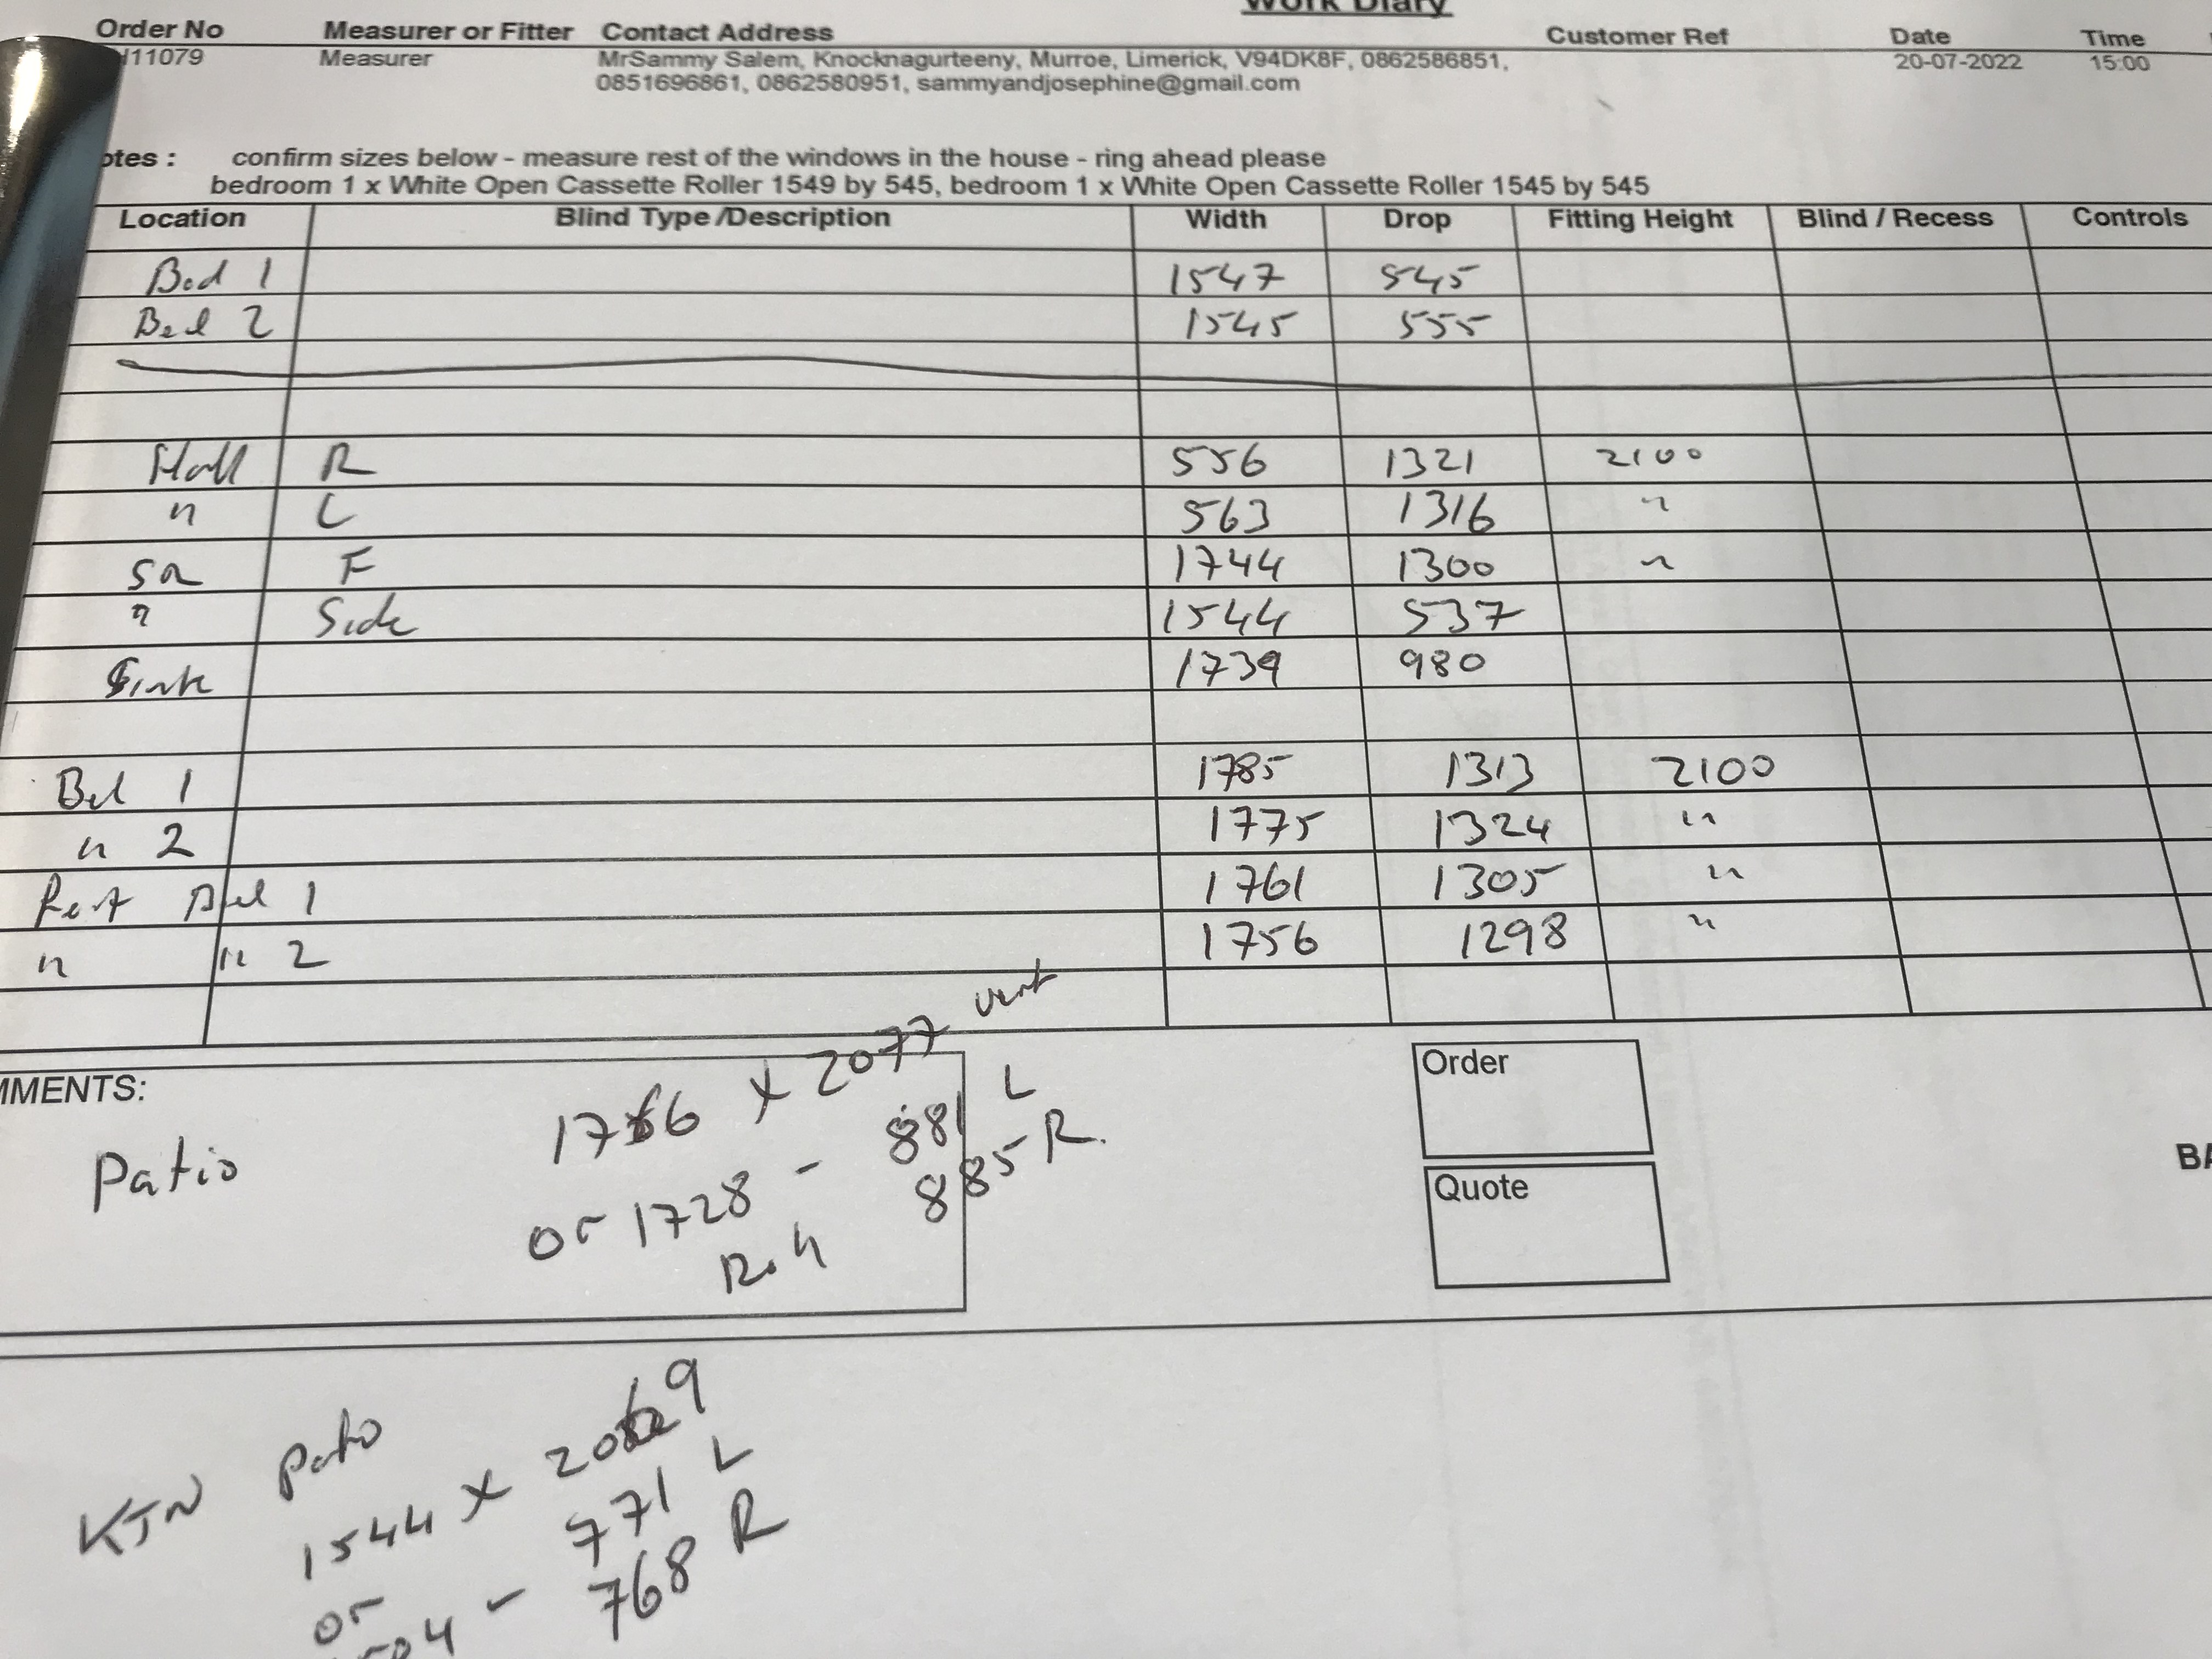 Work Diary
Order No Measurer or Fitter Contact Address Customer Ref Date Time
11079 Measurer MrSammy Salem, Knocknagurteeny, Murroe, Limerick, V94DK8F, 0862586851, 20-07-2022 15:00
0851696861, 0862580951, sammyandjosephine@gmail.com
otes : confirm sizes below - measure rest of the windows in the house - ring ahead please
bedroom 1 x White Open Cassette Roller 1549 by 545, bedroom 1 x White Open Cassette Roller 1545 by 545
Location Blind Type /Description Width Drop Fitting Height Blind / Recess Controls
Bed 1 1547 545
Bed 2 1545 555
Hall R 556 1321 2100
" L 563 1316 "
SR F 1744 1300 "
" Side 1544 537
Sink 1739 980
Bed 1 1785 1313 2100
" 2 1775 1324 "
Bed 1 1761 1305 "
" " 2 1756 1298 "
MMENTS:
Patio 1766 x 2077 vert
or 1728 - 881 L
885 R.
Roll
Order
Quote
BA
KTN Patio
1544 x 2069
or 771 L
504 - 768 R